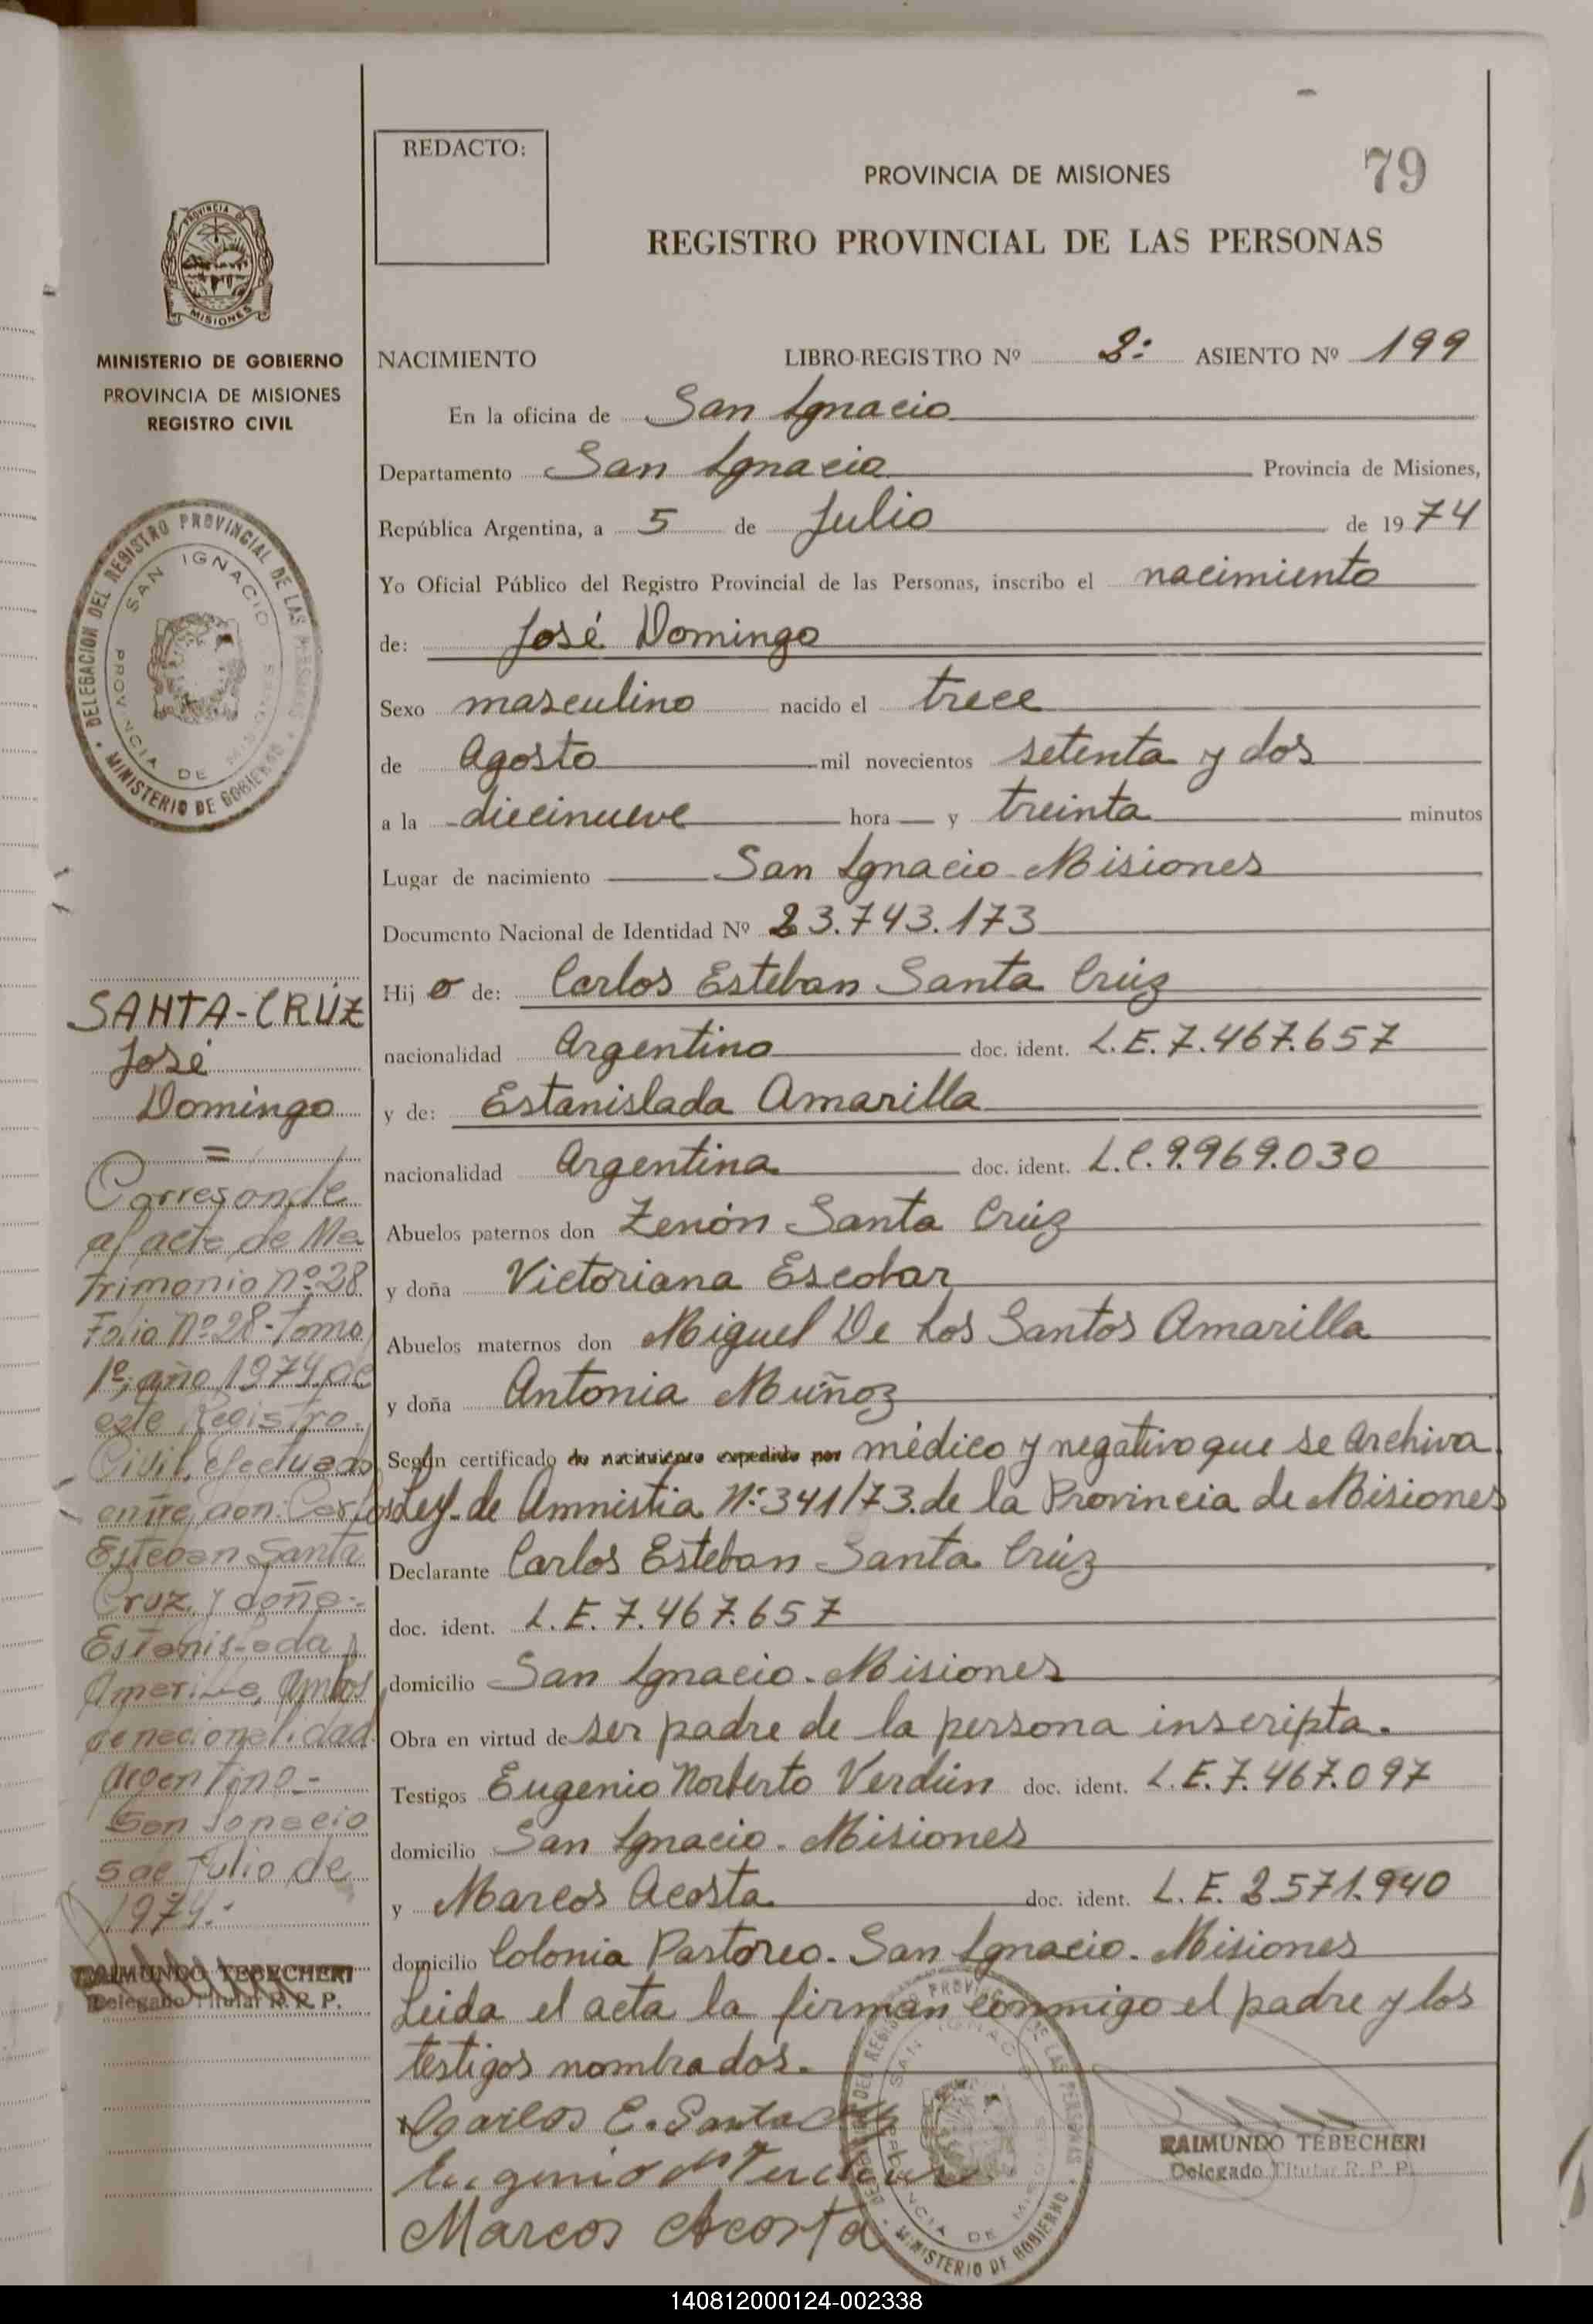 REDACTO:
PROVINCIA DE MISIONES
79
REGISTRO PROVINCIAL DE LAS PERSONAS
PROVINCIA DE
MISIONES
MINISTERIO DE GOBIERNO
PROVINCIA DE MISIONES
REGISTRO CIVIL
NACIMIENTO LIBRO-REGISTRO Nº 2º ASIENTO Nº 199
En la oficina de San Ignacio
Departamento San Ignacio Provincia de Misiones,
República Argentina, a 5 de Julio de 1974
Yo Oficial Público del Registro Provincial de las Personas, inscribo el nacimiento
de: José Domingo
Sexo masculino nacido el trece
de Agosto mil novecientos setenta y dos
a la diecinueve hora y treinta minutos
Lugar de nacimiento San Ignacio Misiones
Documento Nacional de Identidad Nº 23.743.173
Hijo de: Carlos Esteban Santa Crúz
nacionalidad Argentino doc. ident. L.E. 7.467.657
y de: Estanislada Amarilla
nacionalidad Argentina doc. ident. L.C. 9.969.030
Abuelos paternos don Zenón Santa Crúz
y doña Victoriana Escobar
Abuelos maternos don Miguel De Los Santos Amarilla
y doña Antonia Muñoz
Según certificado de nacimiento expedido por médico y negativo que se Archiva.
Ley de Amnistia Nº 341/73. de la Provincia de Misiones
Declarante Carlos Esteban Santa Crúz
doc. ident. L.E. 7.467.657
domicilio San Ignacio. Misiones
Obra en virtud de ser padre de la persona inscripta.
Testigos Eugenio Norberto Verdún doc. ident. L.E. 7.467.097
domicilio San Ignacio. Misiones
y Marcos Acosta doc. ident. L.E. 2.571.940
domicilio Colonia Pastoreo. San Ignacio. Misiones
Leida el acta la firman conmigo el padre y los
testigos nombrados.
Carlos E. Santa Cruz
Eugenio N
Marcos Acosta
RAIMUNDO TEBECHERI
Delegado Titular R. P. P.
DELEGACION DEL REGISTRO PROVINCIAL DE LAS PERSONAS
SAN IGNACIO
PROVINCIA DE MISIONES
MINISTERIO DE GOBIERNO
SANTA-CRÚZ
José
Domingo
=
Corresonde
al acta de Ma
trimonio nº 28
Folio Nº 28-Tomo
1º, año 1974 de
este Registro
Civil, efectuado
entre don: Carlos
Esteban Santa
Cruz y doña:-
Estanislada
Amarilla, ambos
de nacionalidad
Argentino.-
San Ignacio
5 de Julio de
1974.-
RAIMUNDO TEBECHERI
Delegado Titular R. P. P.
DEL REGISTRO PROVINCIAL DE LAS PERSONAS
SAN IGNACIO
PROVINCIA DE MISIONES
MINISTERIO DE GOBIERNO
140812000124-002338